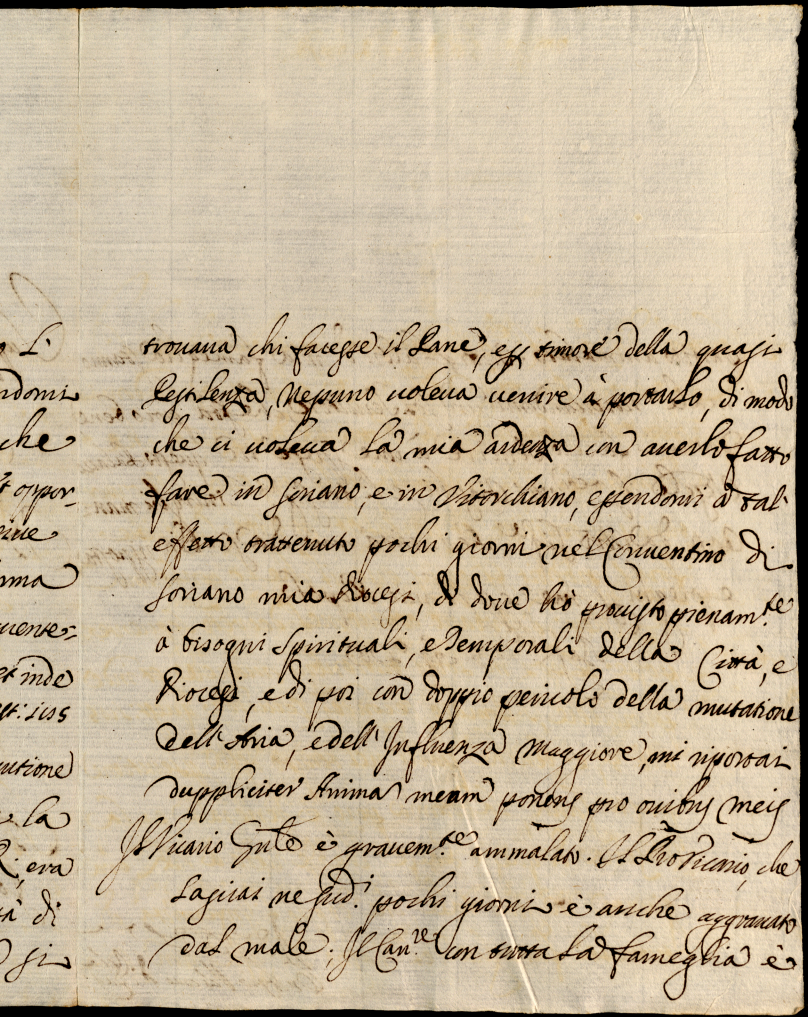 o L'
ndomi
che
t oppor-
nma
uente=
et inde
utione
la
era
tà di
si
trouaua chi facesse il Pane, e p timore della quasi
Pestilenza, Nessuno uoleua uenire à portarlo, di modo
che ci uoleua la mia ardenza con auerlo fatto
fare in Soriano, e in Vitorchiano, essendomi à tal'
effetto trattenuto pochi giorni nel Conuentino di
Soriano mia Diocesi, di doue hò prouisto pienam.te
à bisogni Spirituali, e Temporali della Città, e
Diocesi, e di poi con doppio pericolo della mutatione
dell'Aria, e dell'Influenza Maggiore, mi riportai
duppliciter Anima meam ponens pro ouibus meis
Il Vicario Gnle è grauem.te ammalato. Il ProVicario, che
lasciai ne sud.i pochi giorni è anche aggrauato
dal male; Il Can.re con tutta la fameglia è